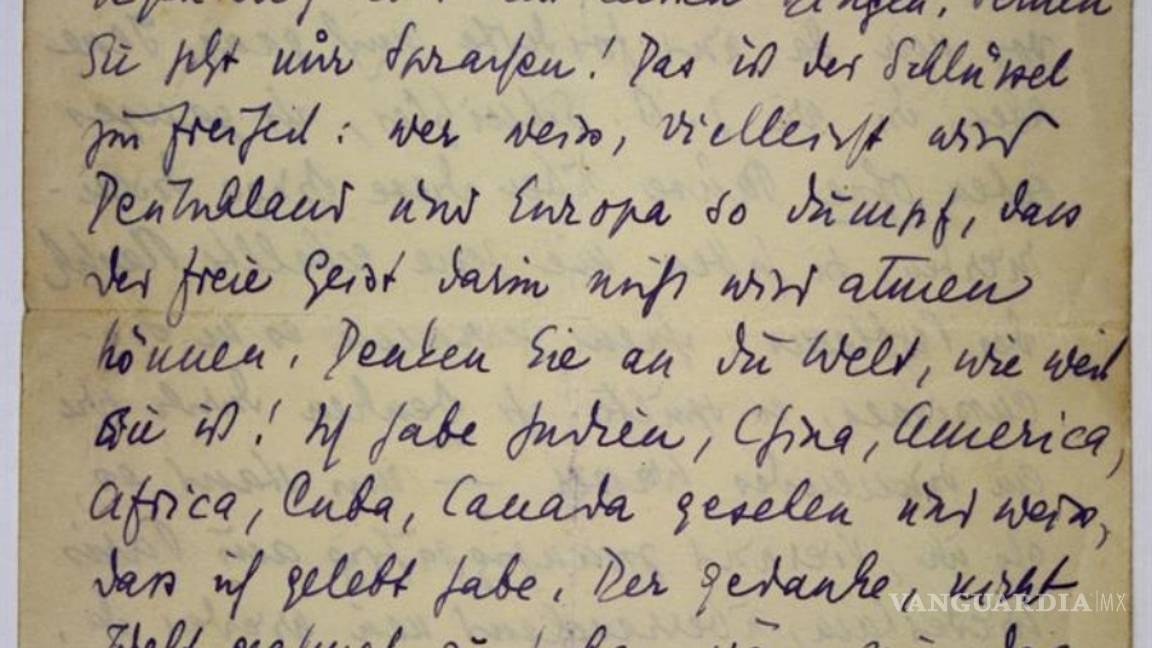 Sie jetzt nur Sprachen! Das ist der Schlüssel
zur Freiheit: wer weiss, vielleicht wird
Deutschland und Europa so dumpf, dass
der freie Geist darin nicht wird atmen
können. Denken Sie an die Welt, wie weit
sie ist! Ich habe Indien, China, America,
Africa, Cuba, Canada gesehen und weiss,
dass ich gelebt habe. Der gedanke, nicht
VANGUARDIA|MX